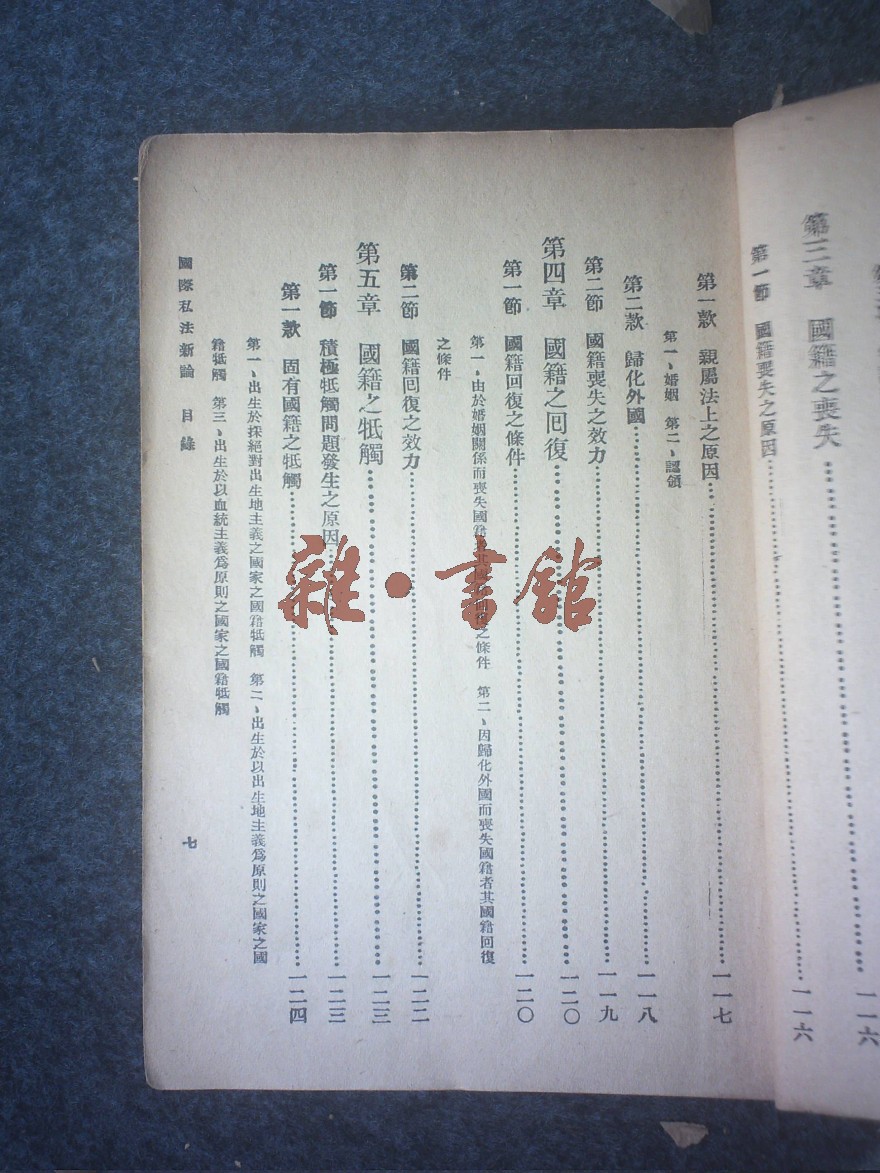 第三章 國籍之喪失 一一六
第一節 國籍喪失之原因 一一六
第一款 親屬法上之原因 一一七
第一、婚姻 第二、認領
第二款 歸化外國 一一八
第二節 國籍喪失之效力 一一九
第四章 國籍之囘復 一二〇
第一節 國籍回復之條件 一二〇
第一、由於婚姻關係而喪失國籍者其國籍回復之條件 第二、因歸化外國而喪失國籍者其國籍回復
之條件
第二節 國籍囘復之效力 一二二
第五章 國籍之牴觸 一二三
第一節 積極牴觸問題發生之原因 一二三
第一款 固有國籍之牴觸 一二四
第一、出生於採絕對出生地主義之國家之國籍牴觸 第二、出生於以出生地主義爲原則之國家之國
籍牴觸 第三、出生於以血統主義爲原則之國家之國籍牴觸
國際私法新論 目錄
七
雜·書館